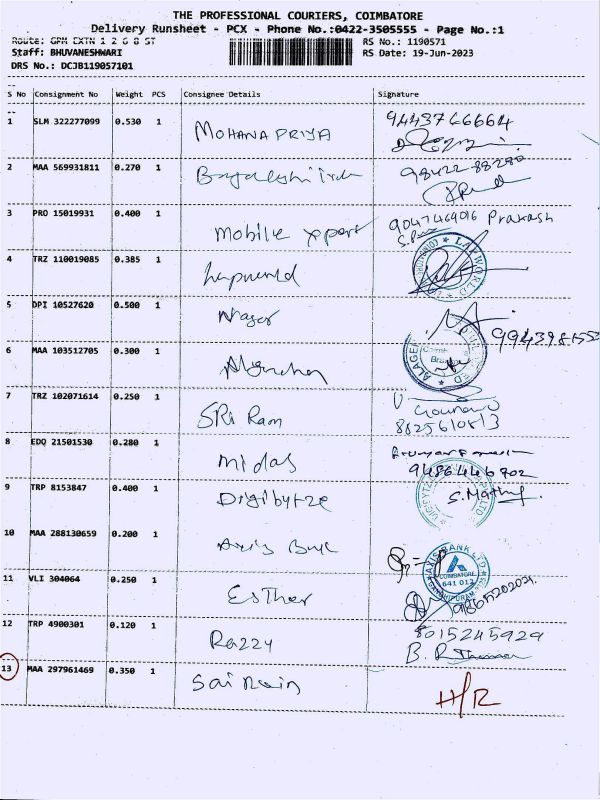 THE PROFESSIONAL COURIERS, COIMBATORE
Delivery Runsheet - PCX - Phone No.:0422-3505555 - Page No.:1
Route: GPM EXTN 1 2 6 8 ST RS No.: 1190571
Staff: BHUVANESHWARI RS Date: 19-Jun-2023
DRS No.: DCJB119057101
S No Consignment No Weight PCS Consignee Details Signature
1 SLM 322277099 0.530 1 MOHANA PRIYA 9443766664
2 MAA 569931811 0.270 1 98422-88280
3 PRO 15019931 0.400 1 Mobile xpart 9047469016 Prakash
4 TRZ 110019085 0.385 1 LAPWORLD
5 DPI 10527620 0.500 1
6 MAA 103512705 0.300 1
7 TRZ 102071614 0.250 1 SRi Ram
8825610813
8 EDQ 21501530 0.280 1 midas
9486446702
9 TRP 8153847 0.400 1 Digibytze S. Mathy
10 MAA 288130659 0.200 1 Axis Bank AXIS BANK LTD.
COIMBATORE
641 012
11 VLI 304064 0.250 1 Esther 9865202021
12 TRP 4900301 0.120 1 Razzy 8015245929
B. R
13 MAA 297961469 0.350 1 Sai H/R